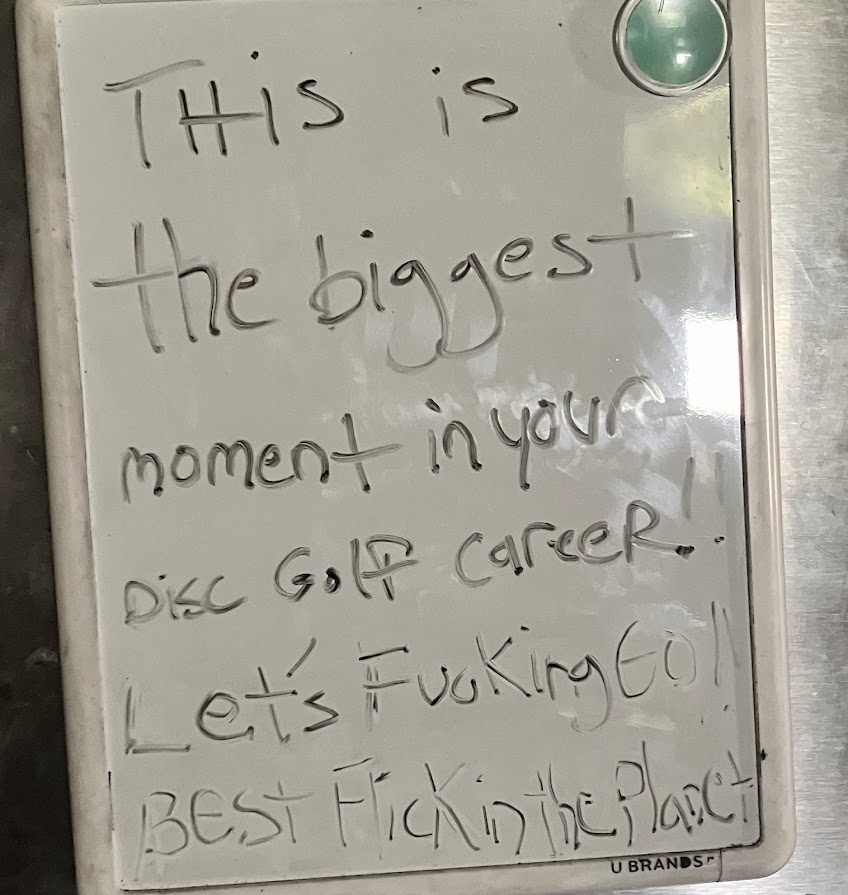 THis is
the biggest
moment in your
Disc Golf CareeR!!
Let's Fucking GO!!
BEST Flick in the Planet
U BRANDS